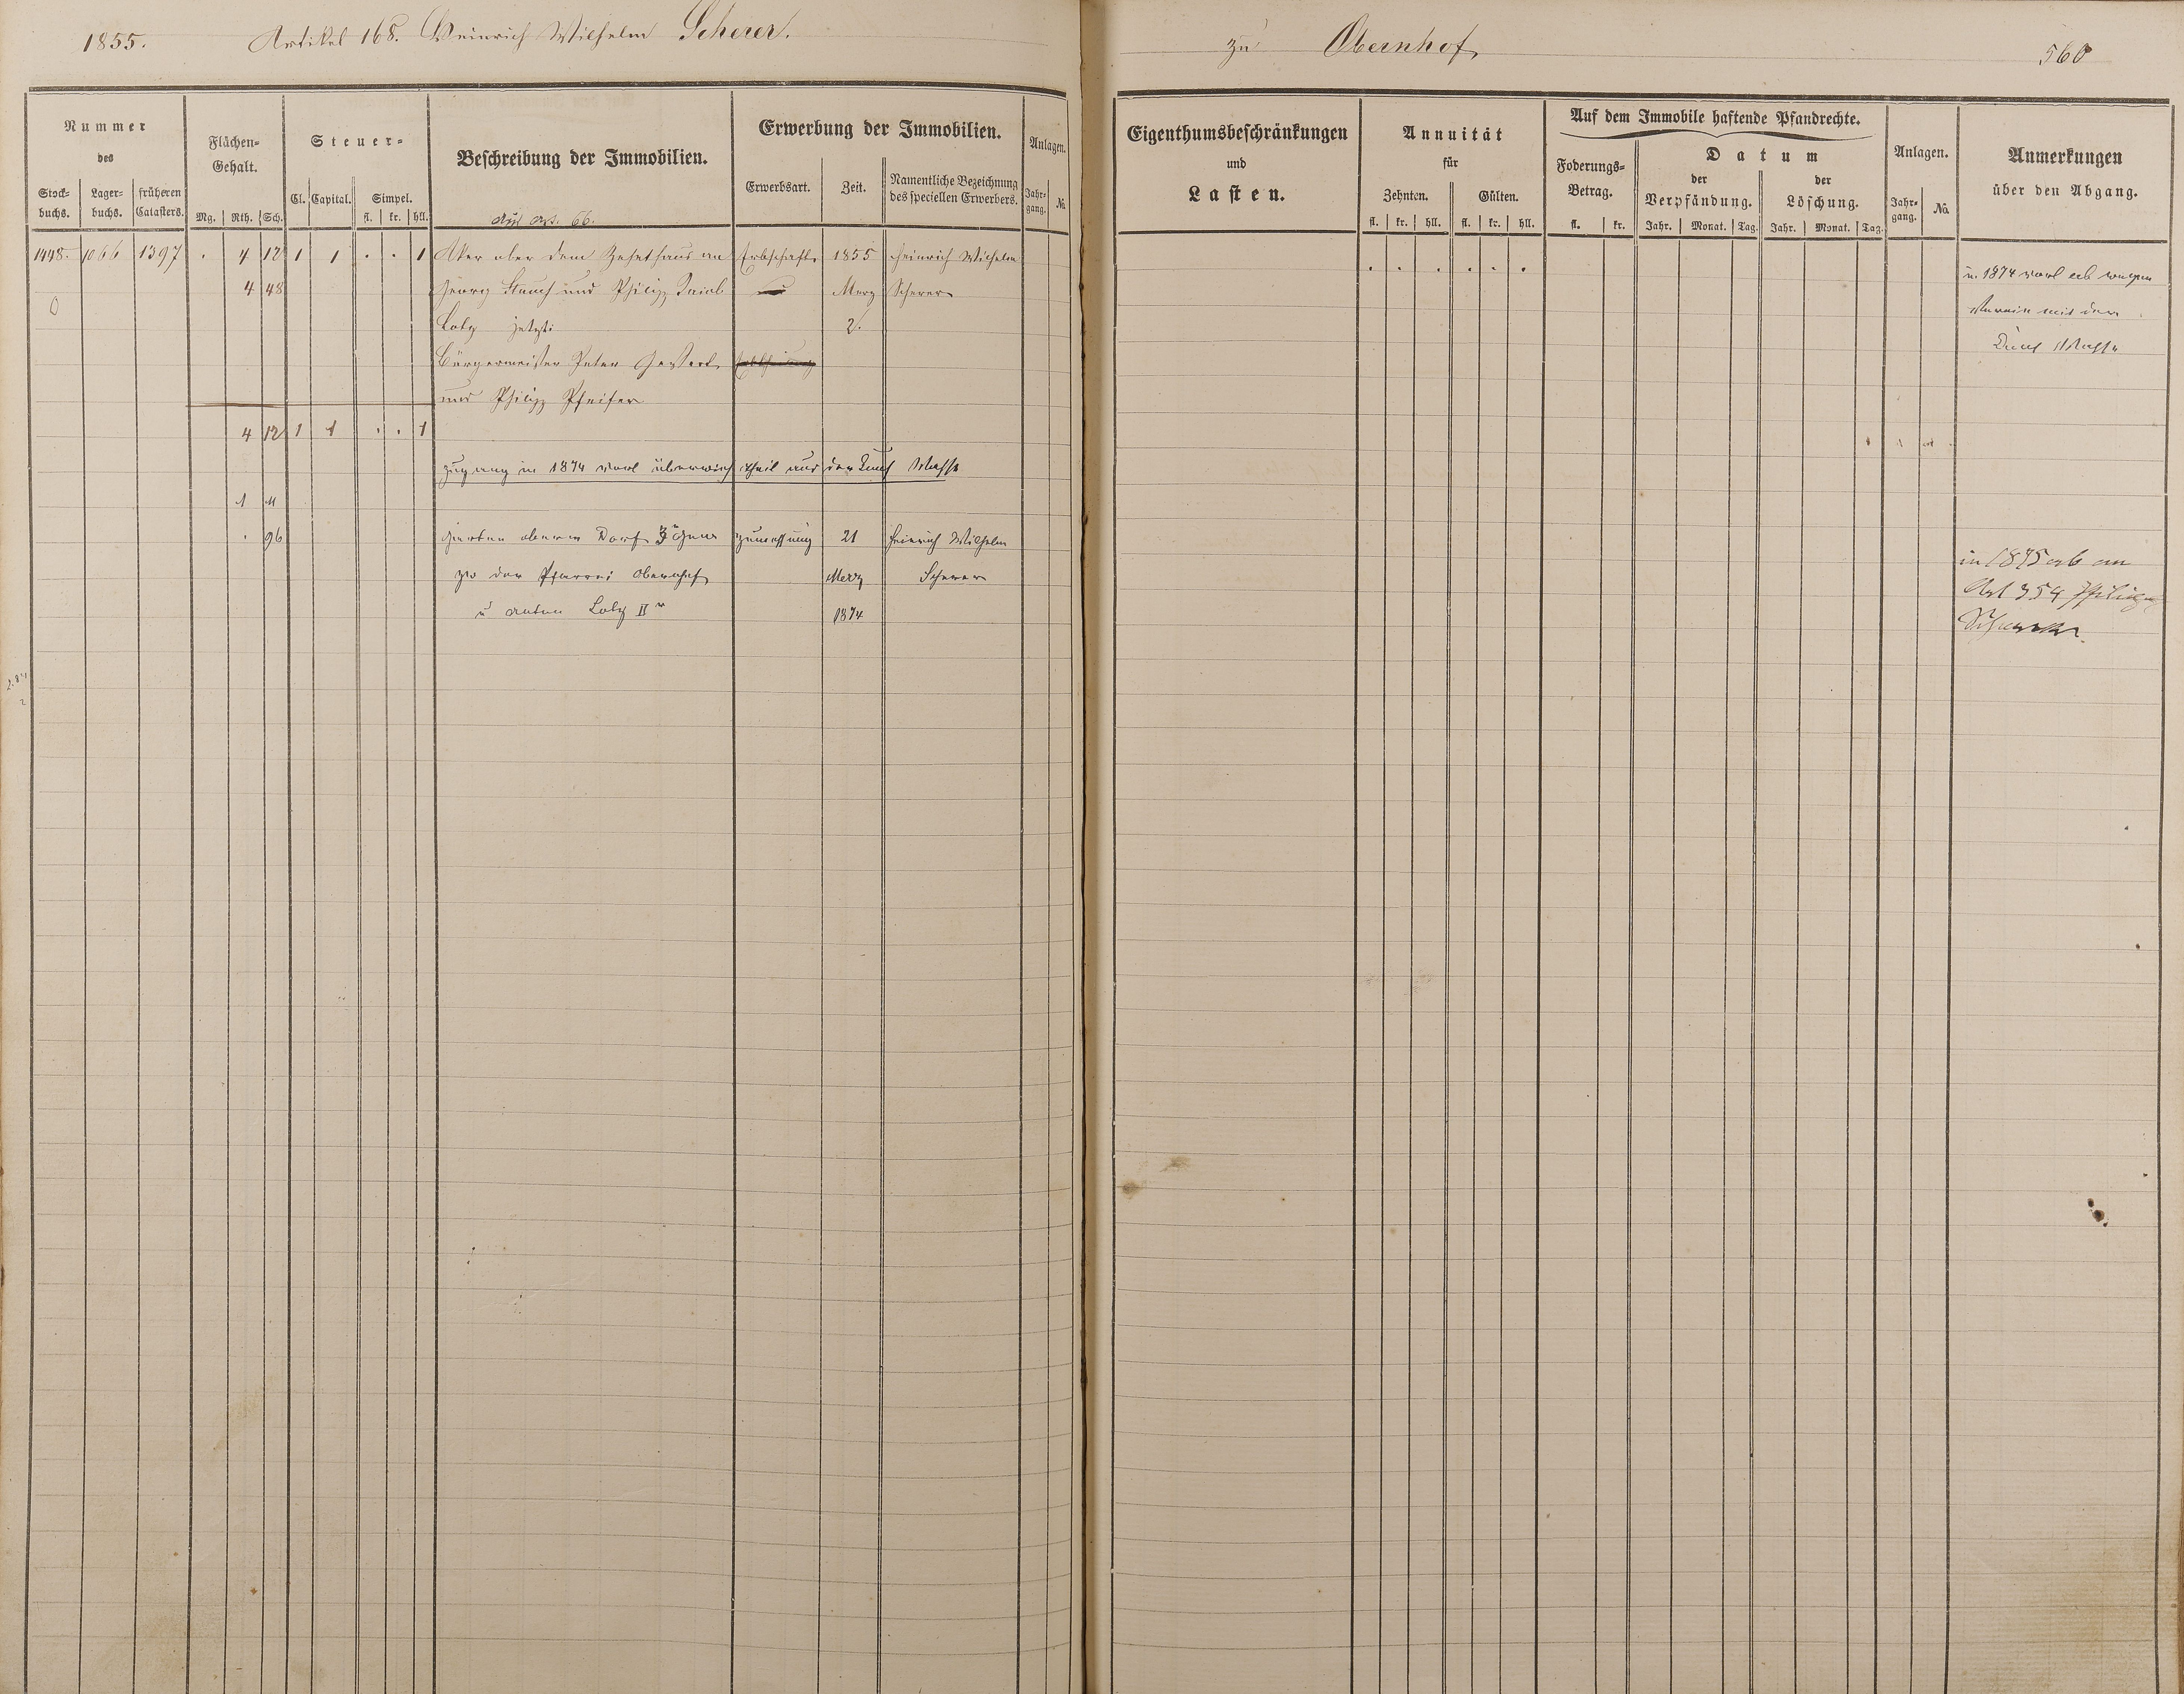 1855. Artikel 168. Heinrich Wilhelm Scherer.
zu Obernhof 560
Nummer
des
Stock-
buchs.
Lager-
buchs.
früheren
Catasters.
Flächen-
Gehalt.
Mg. Rth. Sch.
Steuer-
Cl. Capital. Simpel.
fl. kr. hll.
Beschreibung der Immobilien.
Aus Art. 66.
Erwerbung der Immobilien.
Erwerbsart. Zeit. Namentliche Bezeichnung
des speciellen Erwerbers.
Anlagen.
Jahr-
gang. No.
Eigenthumsbeschränkungen
und
Lasten.
Annuität
für
Zehnten. Gülten.
fl. kr. hll. fl. kr. hll.
Auf dem Immobile haftende Pfandrechte.
Foderungs-
Betrag.
fl. kr.
Datum
der
Verpfändung.
der
Löschung.
Jahr. Monat. Tag. Jahr. Monat. Tag.
Anlagen.
Jahr-
gang. No.
Anmerkungen
über den Abgang.
1448. 1066 1397 . 4 12 1 1 . . 1 Aker ober dem Zehnthaus an Erbschaft 1855 Heinrich Wilhelm
4 48 Georg und Philipp Merz Scherer
0 Lotz jetzt: 2.
Bürgermeister Peter
und Philipp Pfeifer
4 12 1 1 . . 1
. . . . . .
in 1874 ab wegen
mit der
Masse
Zugang in 1874 theil aus der Masse
1 11
. 96 Garten oberm Dorf 21 Heinrich Wilhelm
zw der Pfarrei Obernhof Merz Scherer
u Anton Lotz IIr 1874
in 1875 ab an
Art 354 Philipp